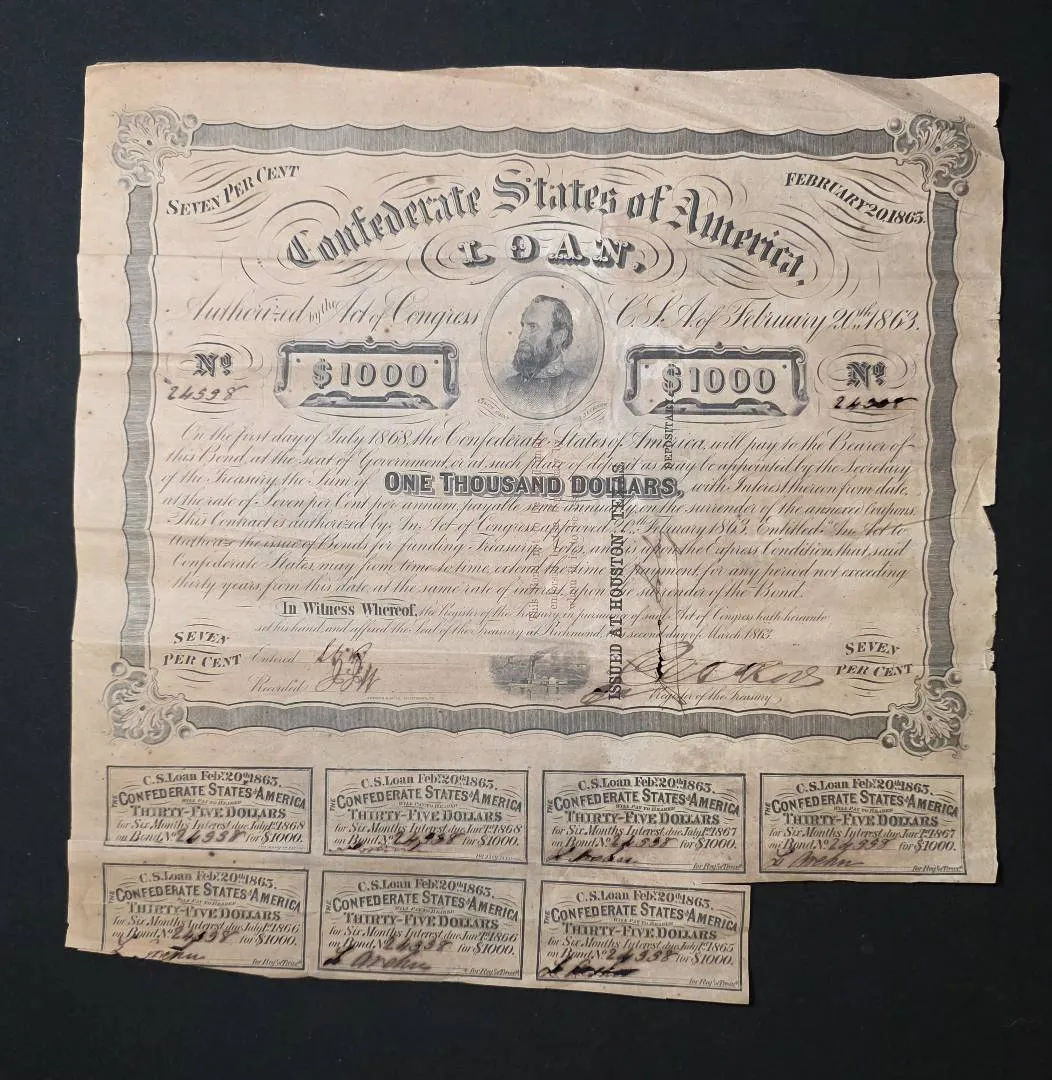 SEVEN PER CENT
FEBRUARY 20, 1863.
Confederate States of America.
LOAN.
Authorized by the Act of Congress C.S.A. of February 20th 1863.
No No
$1000 $1000
24538
On the first day of July 1868, the Confederate States of America, will pay to the Bearer of
this Bond, at the seat of Government, or at such place of deposit as may be appointed by the Secretary
of the Treasury, the Sum of ONE THOUSAND DOLLARS, with Interest thereon from date,
at the rate of Seven per Cent per annum, payable semi annually, on the surrender of the annexed Coupons.
This Contract is authorized by An Act of Congress, approved 20th February 1863. Entitled "An Act to
Authorize the issue of Bonds for funding Treasury Notes, and is upon the Express Condition, that said
Confederate States, may from time to time, extend the time of payment, for any period not exceeding
thirty years, from this date, at the same rate of interest, upon the surrender of the Bond.
In Witness Whereof, the Register of the Treasury, in pursuance of said Act of Congress, hath hereunto
set his hand, and affixed the Seal of the Treasury, at Richmond, this second day of March 1863.
SEVEN PER CENT
SEVEN PER CENT
Entered
Recorded
Register of the Treasury
ISSUED AT HOUSTON, TEXAS
DEPOSITARY
C.S. Loan Feby. 20th 1863.
THE CONFEDERATE STATES of AMERICA
WILL PAY TO BEARER
THIRTY-FIVE DOLLARS
for Six Months Interest due July 1st 1868
on Bond No. 24538 for $1000.
C.S. Loan Feby. 20th 1863.
THE CONFEDERATE STATES of AMERICA
WILL PAY TO BEARER
THIRTY-FIVE DOLLARS
for Six Months Interest due Jany 1st 1868
on Bond No. 24538 for $1000.
C.S. Loan Feby. 20th 1863.
THE CONFEDERATE STATES of AMERICA
WILL PAY TO BEARER
THIRTY-FIVE DOLLARS
for Six Months Interest due July 1st 1867
on Bond No. 24538 for $1000.
for Regr. of Treasy.
C.S. Loan Feby. 20th 1863.
THE CONFEDERATE STATES of AMERICA
WILL PAY TO BEARER
THIRTY-FIVE DOLLARS
for Six Months Interest due Jany 1st 1867
on Bond No. 24538 for $1000.
for Regr. of Treasy.
C.S. Loan Feby. 20th 1863.
THE CONFEDERATE STATES of AMERICA
WILL PAY TO BEARER
THIRTY-FIVE DOLLARS
for Six Months Interest due July 1st 1866
on Bond No. 24538 for $1000.
for Regr. of Treasy.
C.S. Loan Feby. 20th 1863.
THE CONFEDERATE STATES of AMERICA
WILL PAY TO BEARER
THIRTY-FIVE DOLLARS
for Six Months Interest due Jany 1st 1866
on Bond No. 24538 for $1000.
for Regr. of Treasy.
C.S. Loan Feby. 20th 1863.
THE CONFEDERATE STATES of AMERICA
WILL PAY TO BEARER
THIRTY-FIVE DOLLARS
for Six Months Interest due July 1st 1865
on Bond No. 24538 for $1000.
for Regr. of Treasy.